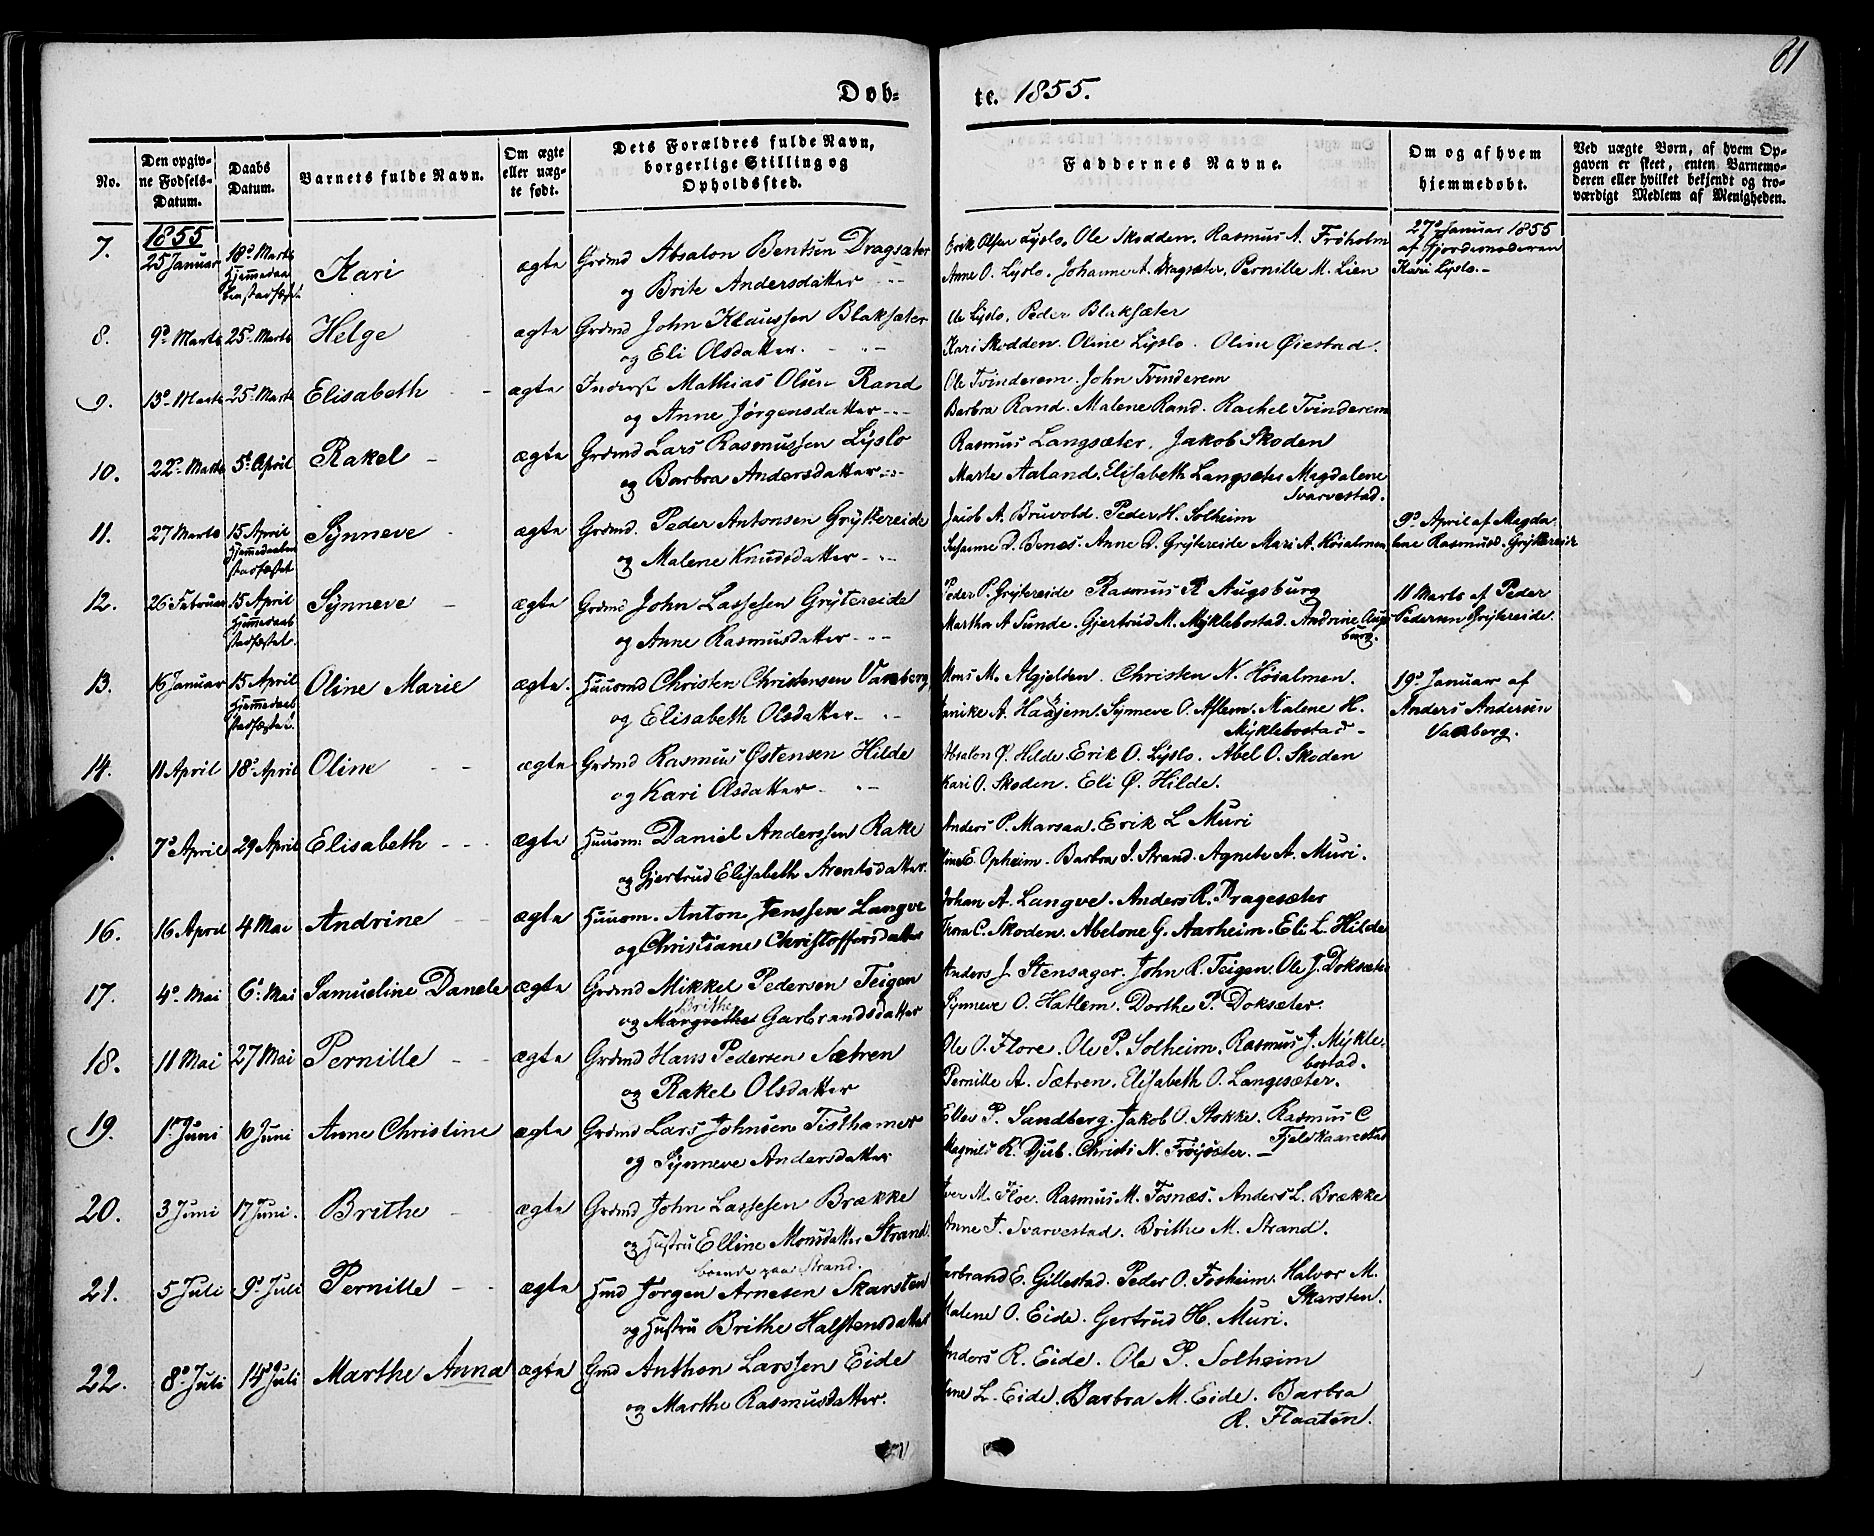 81
Døb-
te. 1855.
No.
Den opgiv-
ne Fødsels-
Datum.
Daabs
Datum.
Barnets fulde Navn.
Om ægte
eller uæg-
te født.
Dets Forældres fulde Navn,
borgerlige Stilling og
Opholdssted.
Faddernes Navne.
Om og af hvem
hjemmedøbt.
Ved uægte Børn, af hvem Op-
gaven er skeet, enten Barnemo-
deren eller hvilket bekjendt og tro-
værdigt Medlem af Menigheden.
1855
7. 25 Januar 18d Marts Kari ægte Grdmd Absalon Bentsen Dragsæter Erik Olsen Lyslo, Ole Skodden, Rasmus A. Frøholm 27d Januar 1855
Hjemmedaa
af Gjordemoderen
ben stadfæst. og Brite Andersdatter Anne O. Lyslo. Johanne A. Dragsæter, Pernille M. Lien Kari Lyslo.
8. 9d Marts 25d Marts Helge ægte Grdmd John Klaussen Blaksæter Ole Lyslo, Peder Blaksæter
og Eli Olsdatter. Kari Skodden. Oline Lyslo. Oline Øiestad.
9. 13d Marts 25d Marts Elisabeth ægte Inderst Mathias Olsen Rand Ole Tvinderem. John Tvinderem
og Anne Jørgensdatter Barbra Rand. Malene Rand. Rachel Tvinderem
10. 22d Marts 5d April Rakel ægte Grdmd Lars Rasmussen Lyslo Rasmus Langsæter. Jakob Skoden
og Barbra Andersdatter Marte Aaland. Elisabeth Langsæter Magdalene
Svarvestad.
11. 27 Marts 15 April Synneve ægte Grdmd. Peder Antonsen Grytereide Jacob A. Bruvold. Peder H. Solheim 9d April af Magda
Hjemmedaaben
stadfæstet og Malene Knudsdatter Susanne D. Benes. Anne D. Grytereide Mari A. Höialmen lene Rasmusd. Grytereide
12. 26 Februar 15 April Synneve ægte Grdmd John Lassesen Grytereide Peder P. Grytereide Rasmus R Augsburg 11 Marts af Peder
Hjemmedaab
stadfæstet. og Anne Rasmusdatter Martha A Sunde. Gjertrud M. Myklebostad. Andrine Augs Pedersen Grytereide.
burg.
13. 16 Januar 15 April Oline Marie ægte. Huusmd Christen Christensen Vaaberg Mons M. Algjelden. Christen N. Höialmen. 19d Januar af
Hjemmedaab
stadfæstet. og Elisabeth Olsdatter Synneve O. Aflem. Malene H. Anders Andersen
Myklebostad Vaaberg.
14. 11 April 18d April Oline ægte Grdmd Rasmus Østensen Hilde Absalon Ø. Hilde. Erik O. Lyslo. Abel O. Skoden
og Kari Olsdatter Kari O. Skoden. Eli Ø. Hilde.
7d April 29 April Elisabeth ægte Huusm: Daniel Anderssen Rake Anders P. Marsaa. Erik L Muri
og Gjertrud Elisabeth Arentsdatter. E. Opheim. Barbra I. Strand. Agnete A. Muri.
16. 16 April 4 Mai Andrine ægte Huusm. Anton Jenssen Langve Johan A. Langve. Anders R. Dragesæter
og Christiane Christoffersdatter Thora C. Skoden. Abelone G. Aarheim. Eli L. Hilde
17. 4d Mai 6d Mai Samueline Danele ægte Grdmd Mikkel Pedersen Teigen Anders J. Stensager. John R. Teigen. Ole J. Doksæter
Brithe
og Margrethe Garbrandsdatter Synneve O. Hatlem. Dorthe P. Doksæter.
18. 11 Mai 27 Mai Pernille ægte Grdmd Hans Pedersen Sætren Ole O. Flore. Ole P. Solheim. Rasmus J. Mykle-
bostad.
og Rakel Olsdatter Pernille A. Sætren. Elisabeth O. Langesæter.
19. 1d Juni 10 Juni Anne Christine ægte Grdmd Lars Johnsen Tisthamer P. Sandberg. Jakob O. Stokke. Rasmus C
Fjelskaarestad
og Synneve Andersdatter Magnild R. Djub. Christi N. Frøysæter.
20. 3 Juni 17 Juni. Brithe ægte Grdmd John Lassesen Brække Iver M. Floe. Rasmus M. Fosnæs. Anders L. Brække
og Hustru Elline Monsdatter Strand. Anne T. Svarvestad. Brithe M. Strand.
boende paa Strand.
21. 5 Juli 9d Juli Pernille ægte Hmd Jørgen Arnesen Skarsten Garbrand E. Gillestad. Peder O. Fosheim. Halvor M.
Skarsten.
og Hustru Brithe Halstensdatter Malene O. Eide. Gertrud H. Muri.
22. 8d Juli 14d Juli Marthe Anna ægte Gmd Anthon Larssen Eide Anders R. Eide. Ole P. Solheim
og Marthe Rasmusdatter. L. Eide. Barbra M. Eide. Barbra
R. Flaaten.